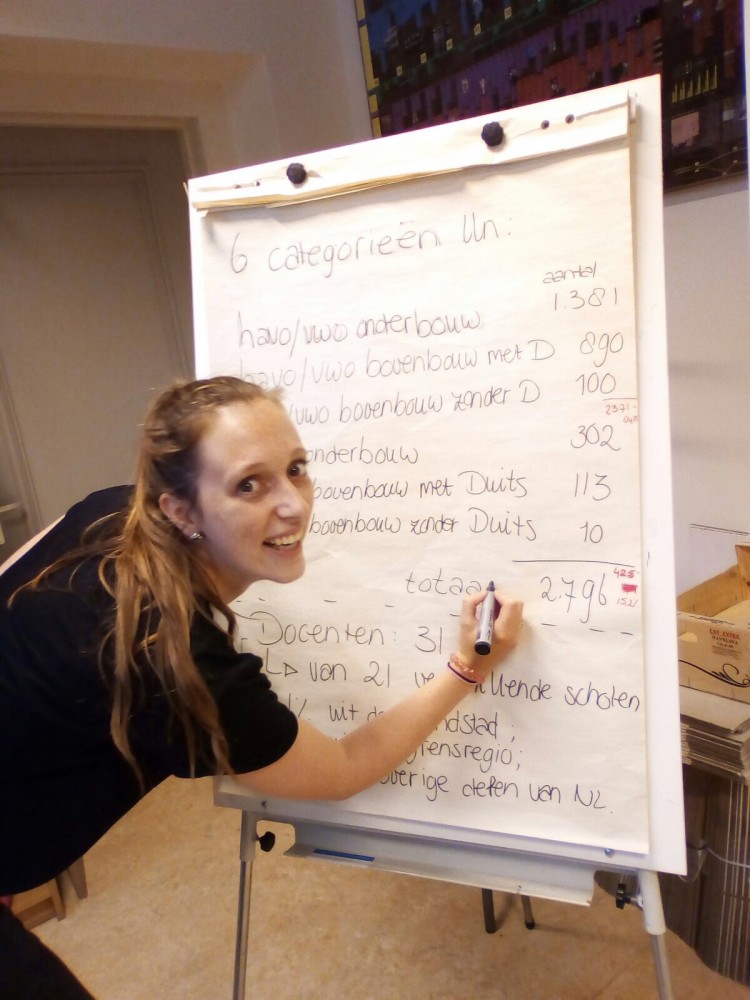 6 categorieën lln:
aantal
havo/vwo onderbouw 1.381
havo/vwo bovenbouw met D 890
/vwo bovenbouw zonder D 100
2371
onderbouw 302
bovenbouw met Duits 113
bovenbouw zonder Duits 10
totaa 2.796
425
Docenten: 31
↳ van 21 ve llende scholen
% uit de ndstad;
grensregio;
overige delen van NL.